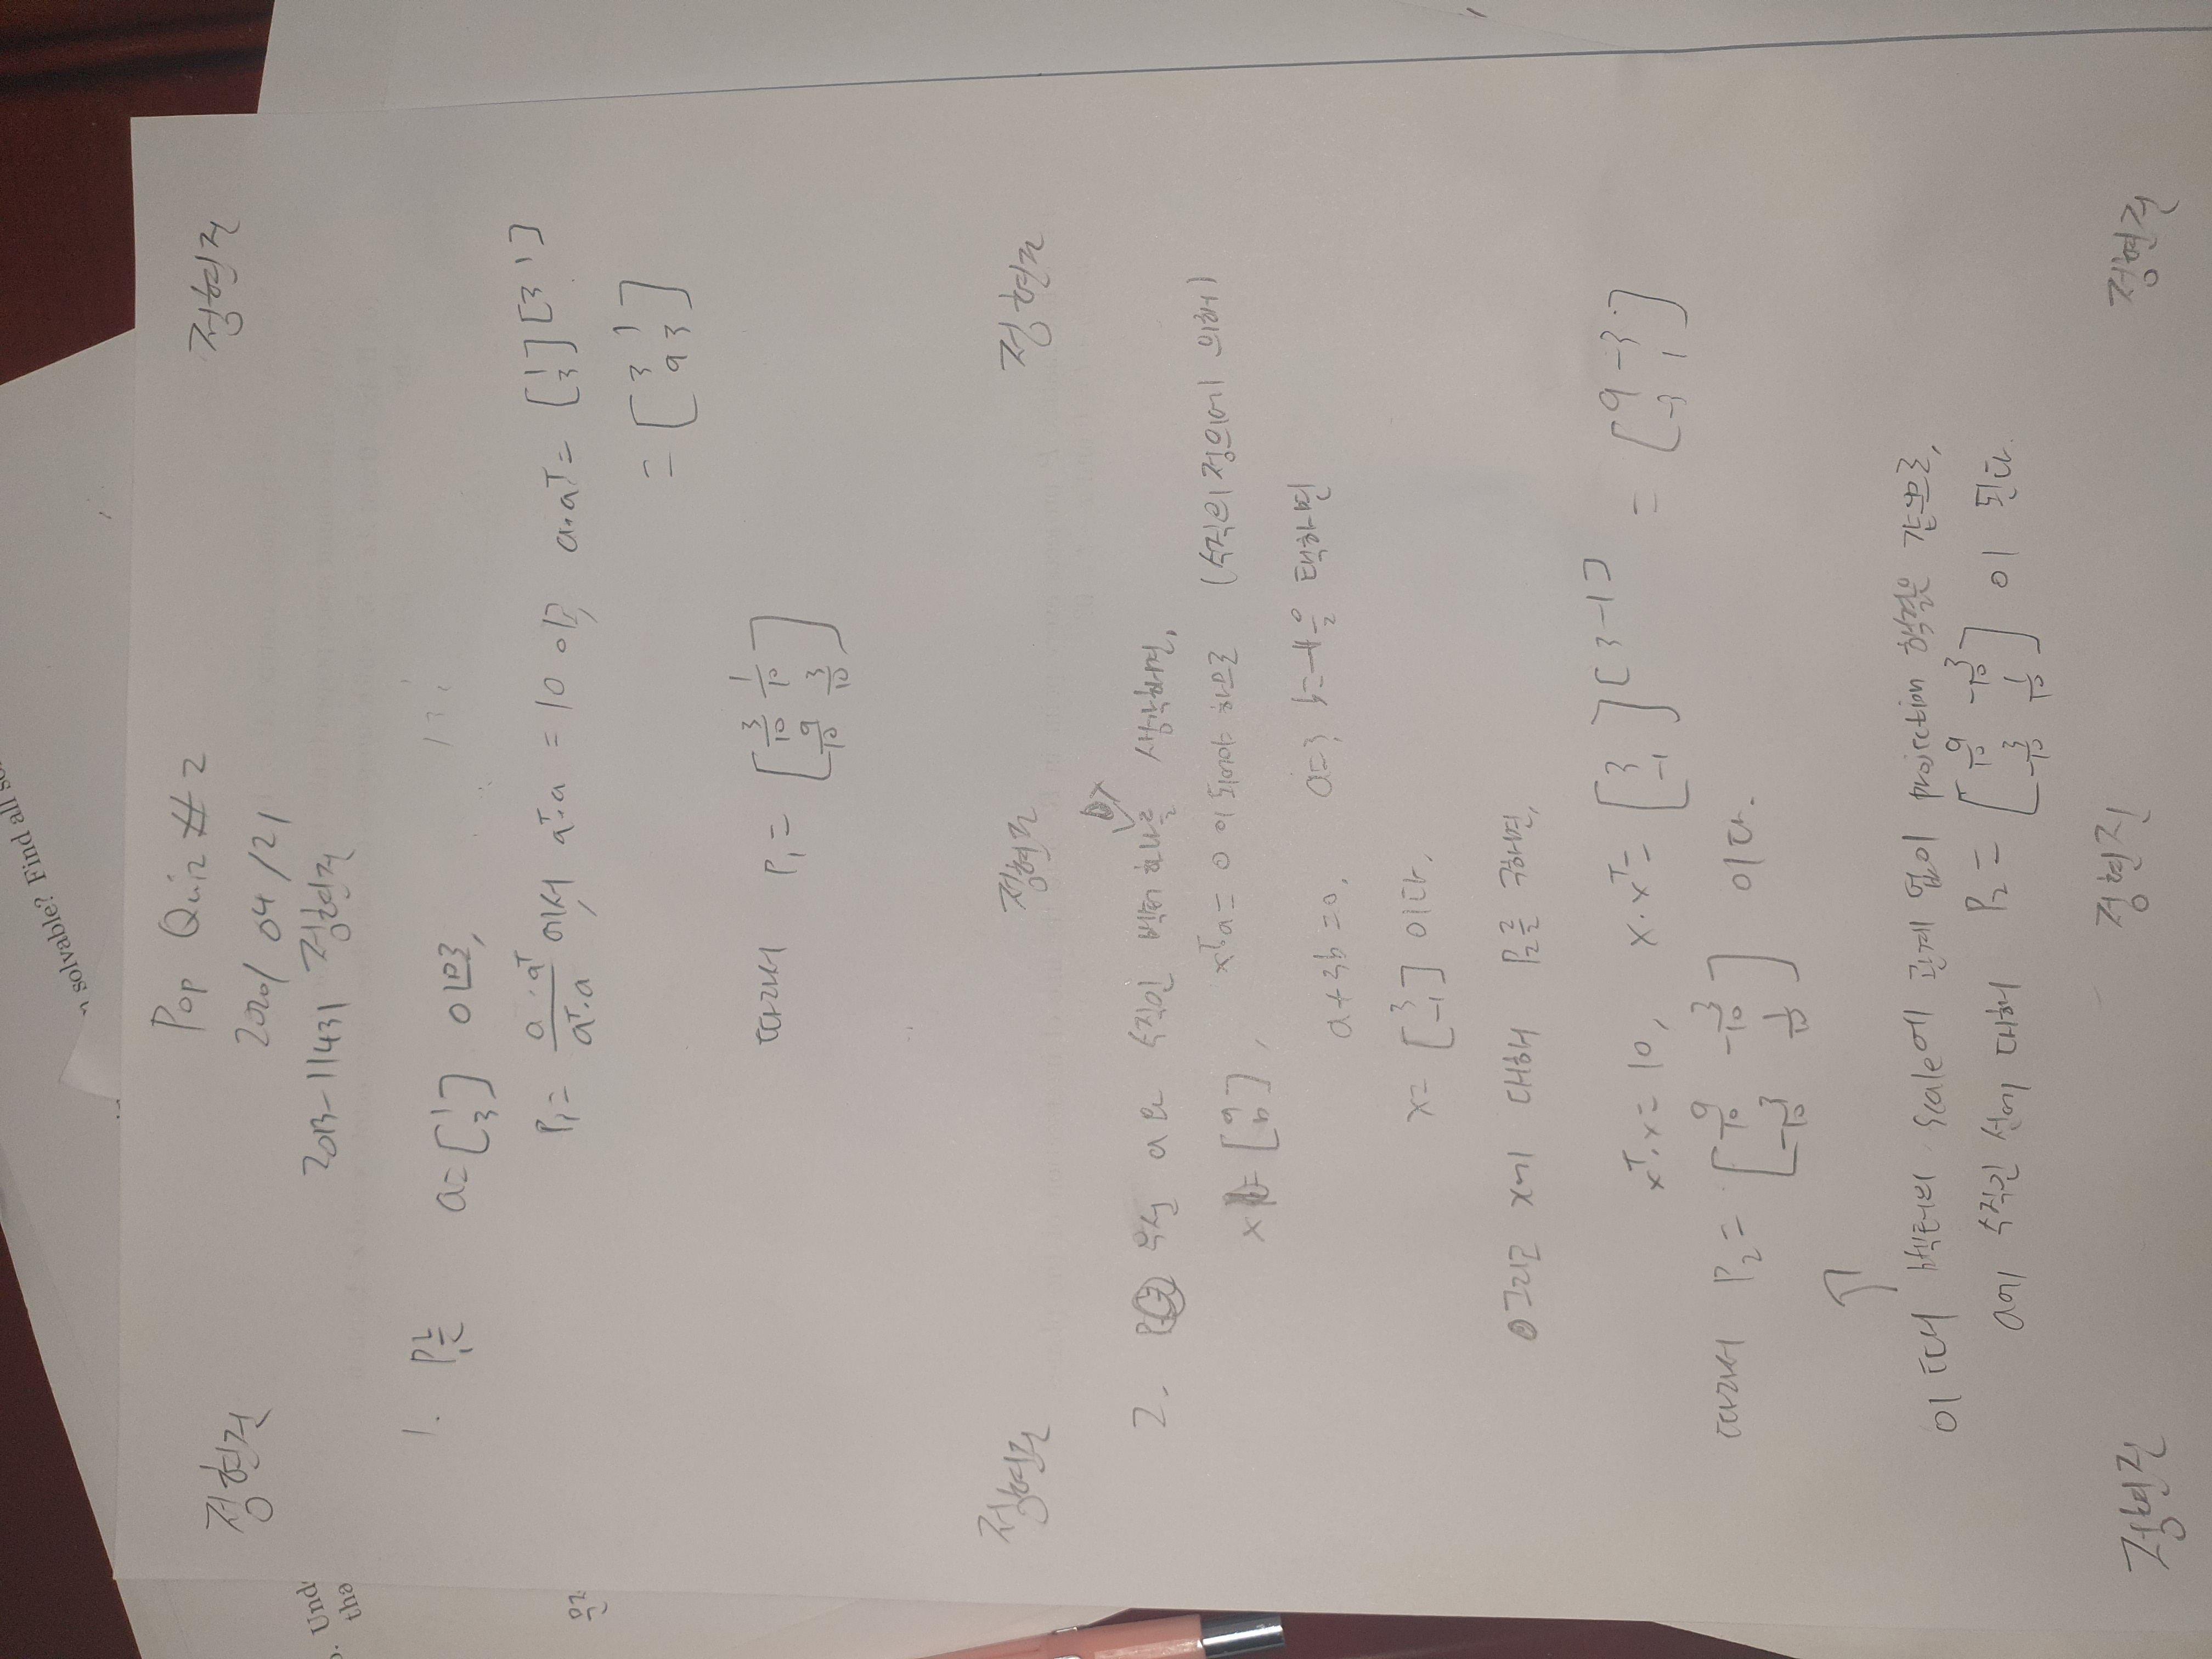 solvable? Find all
Und
tha
Pop Quiz #2
정현진 정현진
2020/04/21
2013-11431 정현진
1. P₁는 a=[1 3] 이므로,
P₁ = a·aᵀ / aᵀ·a 에서, aᵀ·a = 10 이고, a·aᵀ = [1 3][3 1]
= [3 1 9 3]
따라서 P₁ = [3/10 1/10 9/10 3/10]
정현진 정현진 정현진
2. 우선 a와 수직인 벡터 하나 x를 생각하면,
x = [a b], xᵀ·a = 0 이 되어야 하므로 (수직의 정의에 의해)
a+3b=0, a=3 b=-1을 택하면
x= [3 -1] 이다.
그리고 x에 대해 P₂를 구하면,
xᵀ·x = 10, x·xᵀ = [3 -1][3 -1] = [9 -3 -3 1]
따라서 P₂ = [9/10 -3/10 -3/10 1/10] 이다.
↑
이 때 벡터의 scale에 관계 없이 projection 행렬은 같으므로,
a에 수직인 선에 대해 P₂ = [9/10 -3/10 -3/10 1/10] 이 된다.
정현진 정현진 정현진